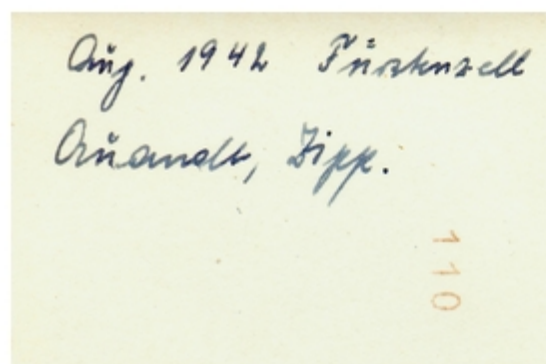 Aug. 1942 Fürstenzell
Quandt, Zipp.
110